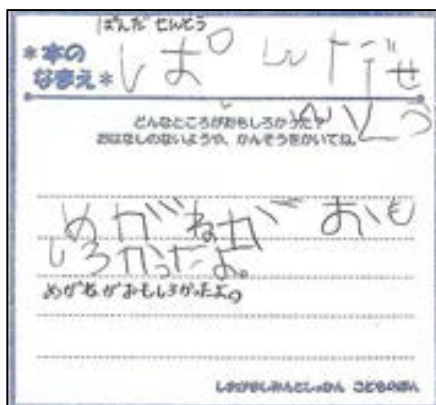 ぱんだ せんとう
*本の
なまえ*
ぱんだせ
んとう
どんなところがおもしろかった?
おはなしのないようや、かんそうをかいてね。
めがねが おも
しろかったよ。
めがねがおもしろかったよ。
しおがましみんとしょかん こどものほん